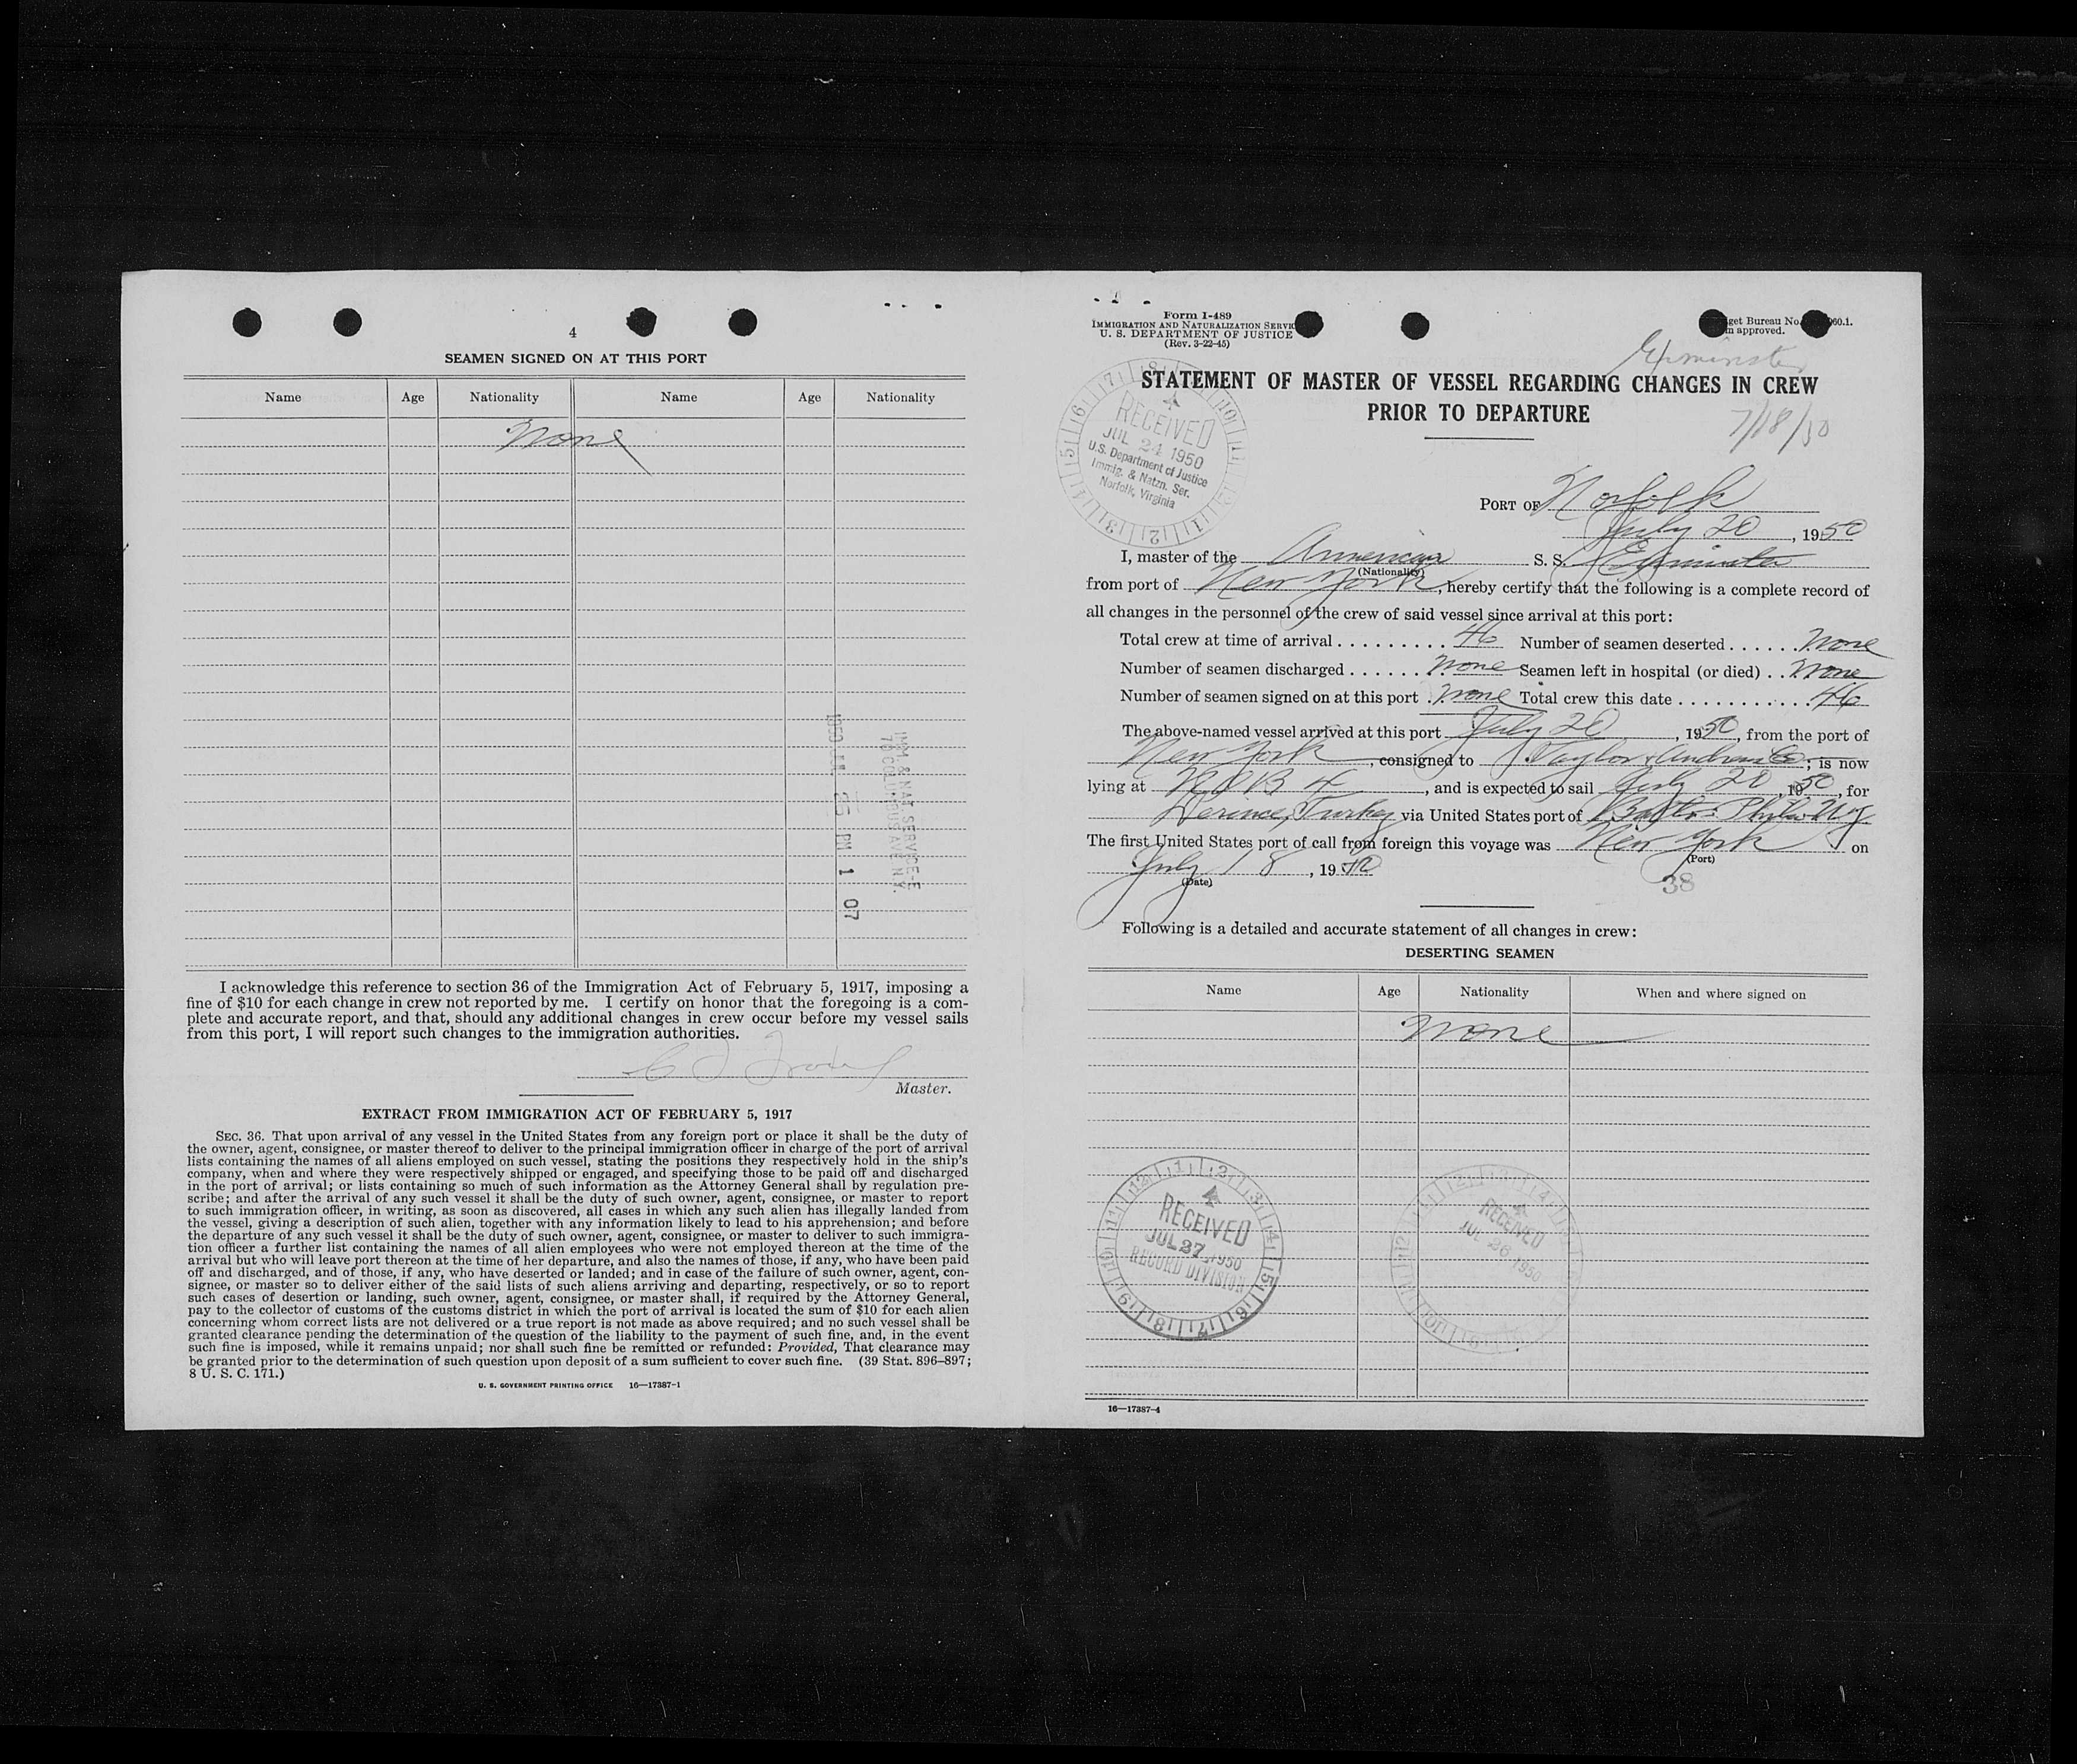 4
SEAMEN SIGNED ON AT THIS PORT
Name Age Nationality Name Age Nationality
None
1950 25 PM 1 07
IMM & NAT SERVICE
70 COLUMBUS AVE N.Y.
I acknowledge this reference to section 36 of the Immigration Act of February 5, 1917, imposing a
fine of $10 for each change in crew not reported by me. I certify on honor that the foregoing is a com-
plete and accurate report, and that, should any additional changes in crew occur before my vessel sails
from this port, I will report such changes to the immigration authorities.
Master.
EXTRACT FROM IMMIGRATION ACT OF FEBRUARY 5, 1917
SEC. 36. That upon arrival of any vessel in the United States from any foreign port or place it shall be the duty of
the owner, agent, consignee, or master thereof to deliver to the principal immigration officer in charge of the port of arrival
lists containing the names of all aliens employed on such vessel, stating the positions they respectively hold in the ship's
company, when and where they were respectively shipped or engaged, and specifying those to be paid off and discharged
in the port of arrival; or lists containing so much of such information as the Attorney General shall by regulation pre-
scribe; and after the arrival of any such vessel it shall be the duty of such owner, agent, consignee, or master to report
to such immigration officer, in writing, as soon as discovered, all cases in which any such alien has illegally landed from
the vessel, giving a description of such alien, together with any information likely to lead to his apprehension; and before
the departure of any such vessel it shall be the duty of such owner, agent, consignee, or master to deliver to such immigra-
tion officer a further list containing the names of all alien employees who were not employed thereon at the time of the
arrival but who will leave port thereon at the time of her departure, and also the names of those, if any, who have been paid
off and discharged, and of those, if any, who have deserted or landed; and in case of the failure of such owner, agent, con-
signee, or master so to deliver either of the said lists of such aliens arriving and departing, respectively, or so to report
such cases of desertion or landing, such owner, agent, consignee, or master shall, if required by the Attorney General,
pay to the collector of customs of the customs district in which the port of arrival is located the sum of $10 for each alien
concerning whom correct lists are not delivered or a true report is not made as above required; and no such vessel shall be
granted clearance pending the determination of the question of the liability to the payment of such fine, and, in the event
such fine is imposed, while it remains unpaid; nor shall such fine be remitted or refunded: Provided, That clearance may
be granted prior to the determination of such question upon deposit of a sum sufficient to cover such fine. (39 Stat. 896–897;
8 U. S. C. 171.)
U. S. GOVERNMENT PRINTING OFFICE 16—17387-1
Form I-489
IMMIGRATION AND NATURALIZATION SERVIC
U. S. DEPARTMENT OF JUSTICE
(Rev. 3-22-45)
get Bureau No. 060.1.
m approved.
Exminster
STATEMENT OF MASTER OF VESSEL REGARDING CHANGES IN CREW
PRIOR TO DEPARTURE
7/18/50
RECEIVED
JUL 24 1950
U.S. Department of Justice
Immig. & Natzn. Ser.
Norfolk, Virginia
PORT OF Norfolk
July 20, 1950
I, master of the American S. S. Exminster
(Nationality)
from port of New York, hereby certify that the following is a complete record of
all changes in the personnel of the crew of said vessel since arrival at this port:
Total crew at time of arrival . . . . . . . . . 46 Number of seamen deserted . . . . . . None
Number of seamen discharged . . . . . . None Seamen left in hospital (or died) . . None
Number of seamen signed on at this port . None Total crew this date . . . . . . . . . . . 46
The above-named vessel arrived at this port July 20, 1950, from the port of
New York, consigned to Taylor & Andrews Co; is now
lying at NOB 4, and is expected to sail July 20, 1950, for
Derince, Turkey via United States port of Balto Phila NY
The first United States port of call from foreign this voyage was New York on
(Port)
July 18, 1950
(Date)
38
Following is a detailed and accurate statement of all changes in crew:
DESERTING SEAMEN
Name Age Nationality When and where signed on
None
RECEIVED
JUL 27 1950
RECORD DIVISION
RECEIVED
JUL 26 1950
16—17387-4